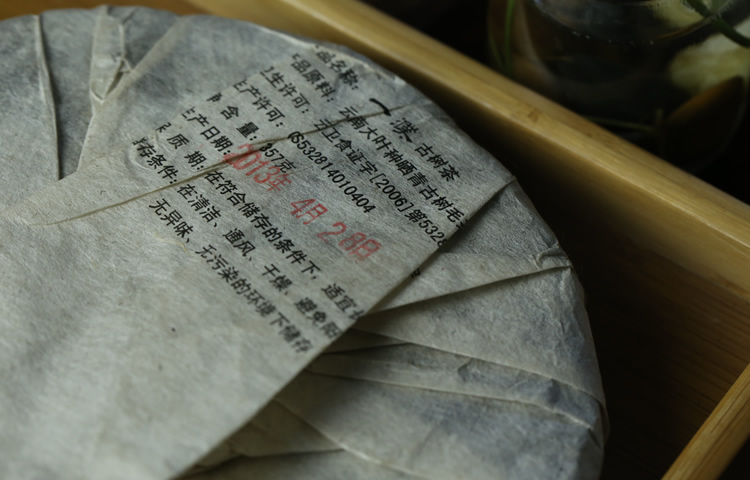 品名称: 古树茶
品原料: 云南大叶种晒青古树毛
生许可: 卫食证字[2006]第5328
产许可: QS532814010404
含量: 357克
产日期: 2013年 4月 28日
质期: 在符合储存的条件下, 适宜
存条件: 在清洁、通风、干燥、避免阳
无异味、无污染的环境下储存